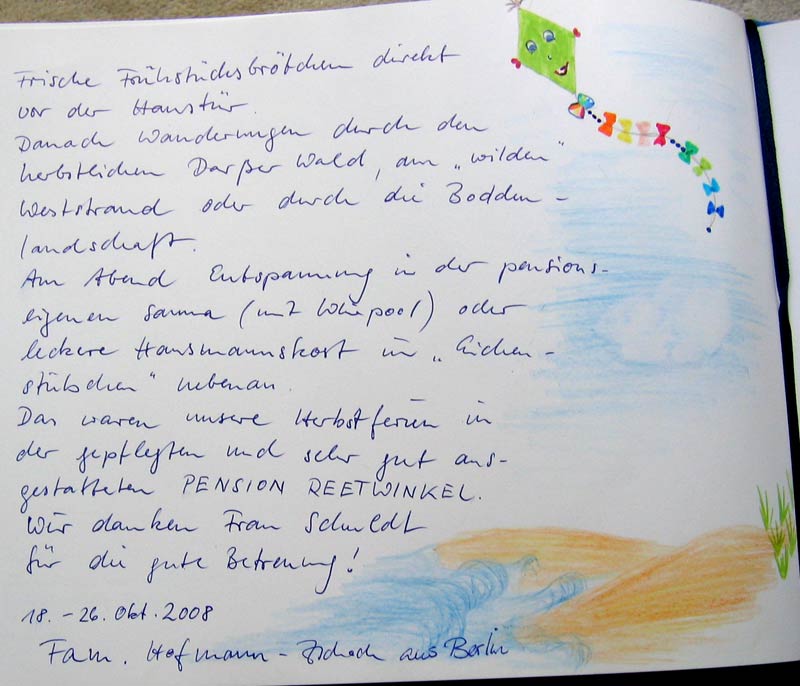 Frische Frühstücksbrötchen direkt
vor der Haustür.
Danach Wanderungen durch den
herbstlichen Darßer Wald, am „wilden"
Weststrand oder durch die Bodden-
landschaft.
Am Abend Entspannung in der pensions-
eigenen Sauna (mit Whirpool) oder
leckere Hausmannskost im „Eichen-
stübchen" nebenan.
Das waren unsere Herbstferien in
der gepflegten und sehr gut aus-
gestatteten PENSION REETWINKEL.
Wir danken Frau Schmidt
für die gute Betreuung!
18. - 26. Okt. 2008
Fam. Hofmann - aus Berlin